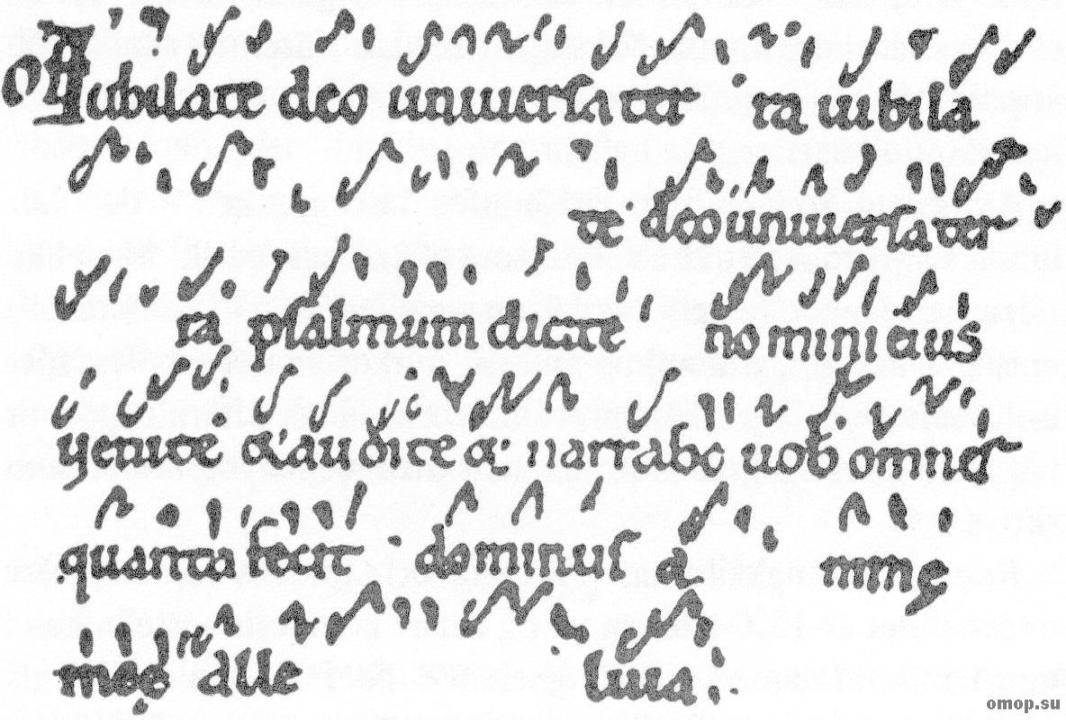 Of Iubilate deo uniuersa ter ra iubila
te deo uniuersa ter
ra psalmum dicite nomini eius
uenite & audite & narrabo uob omnes
quanta fecit dominus a nime
meę alle luia.
omop.su